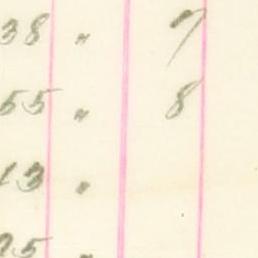 38 " 7
55 " 8
13 "
25 "